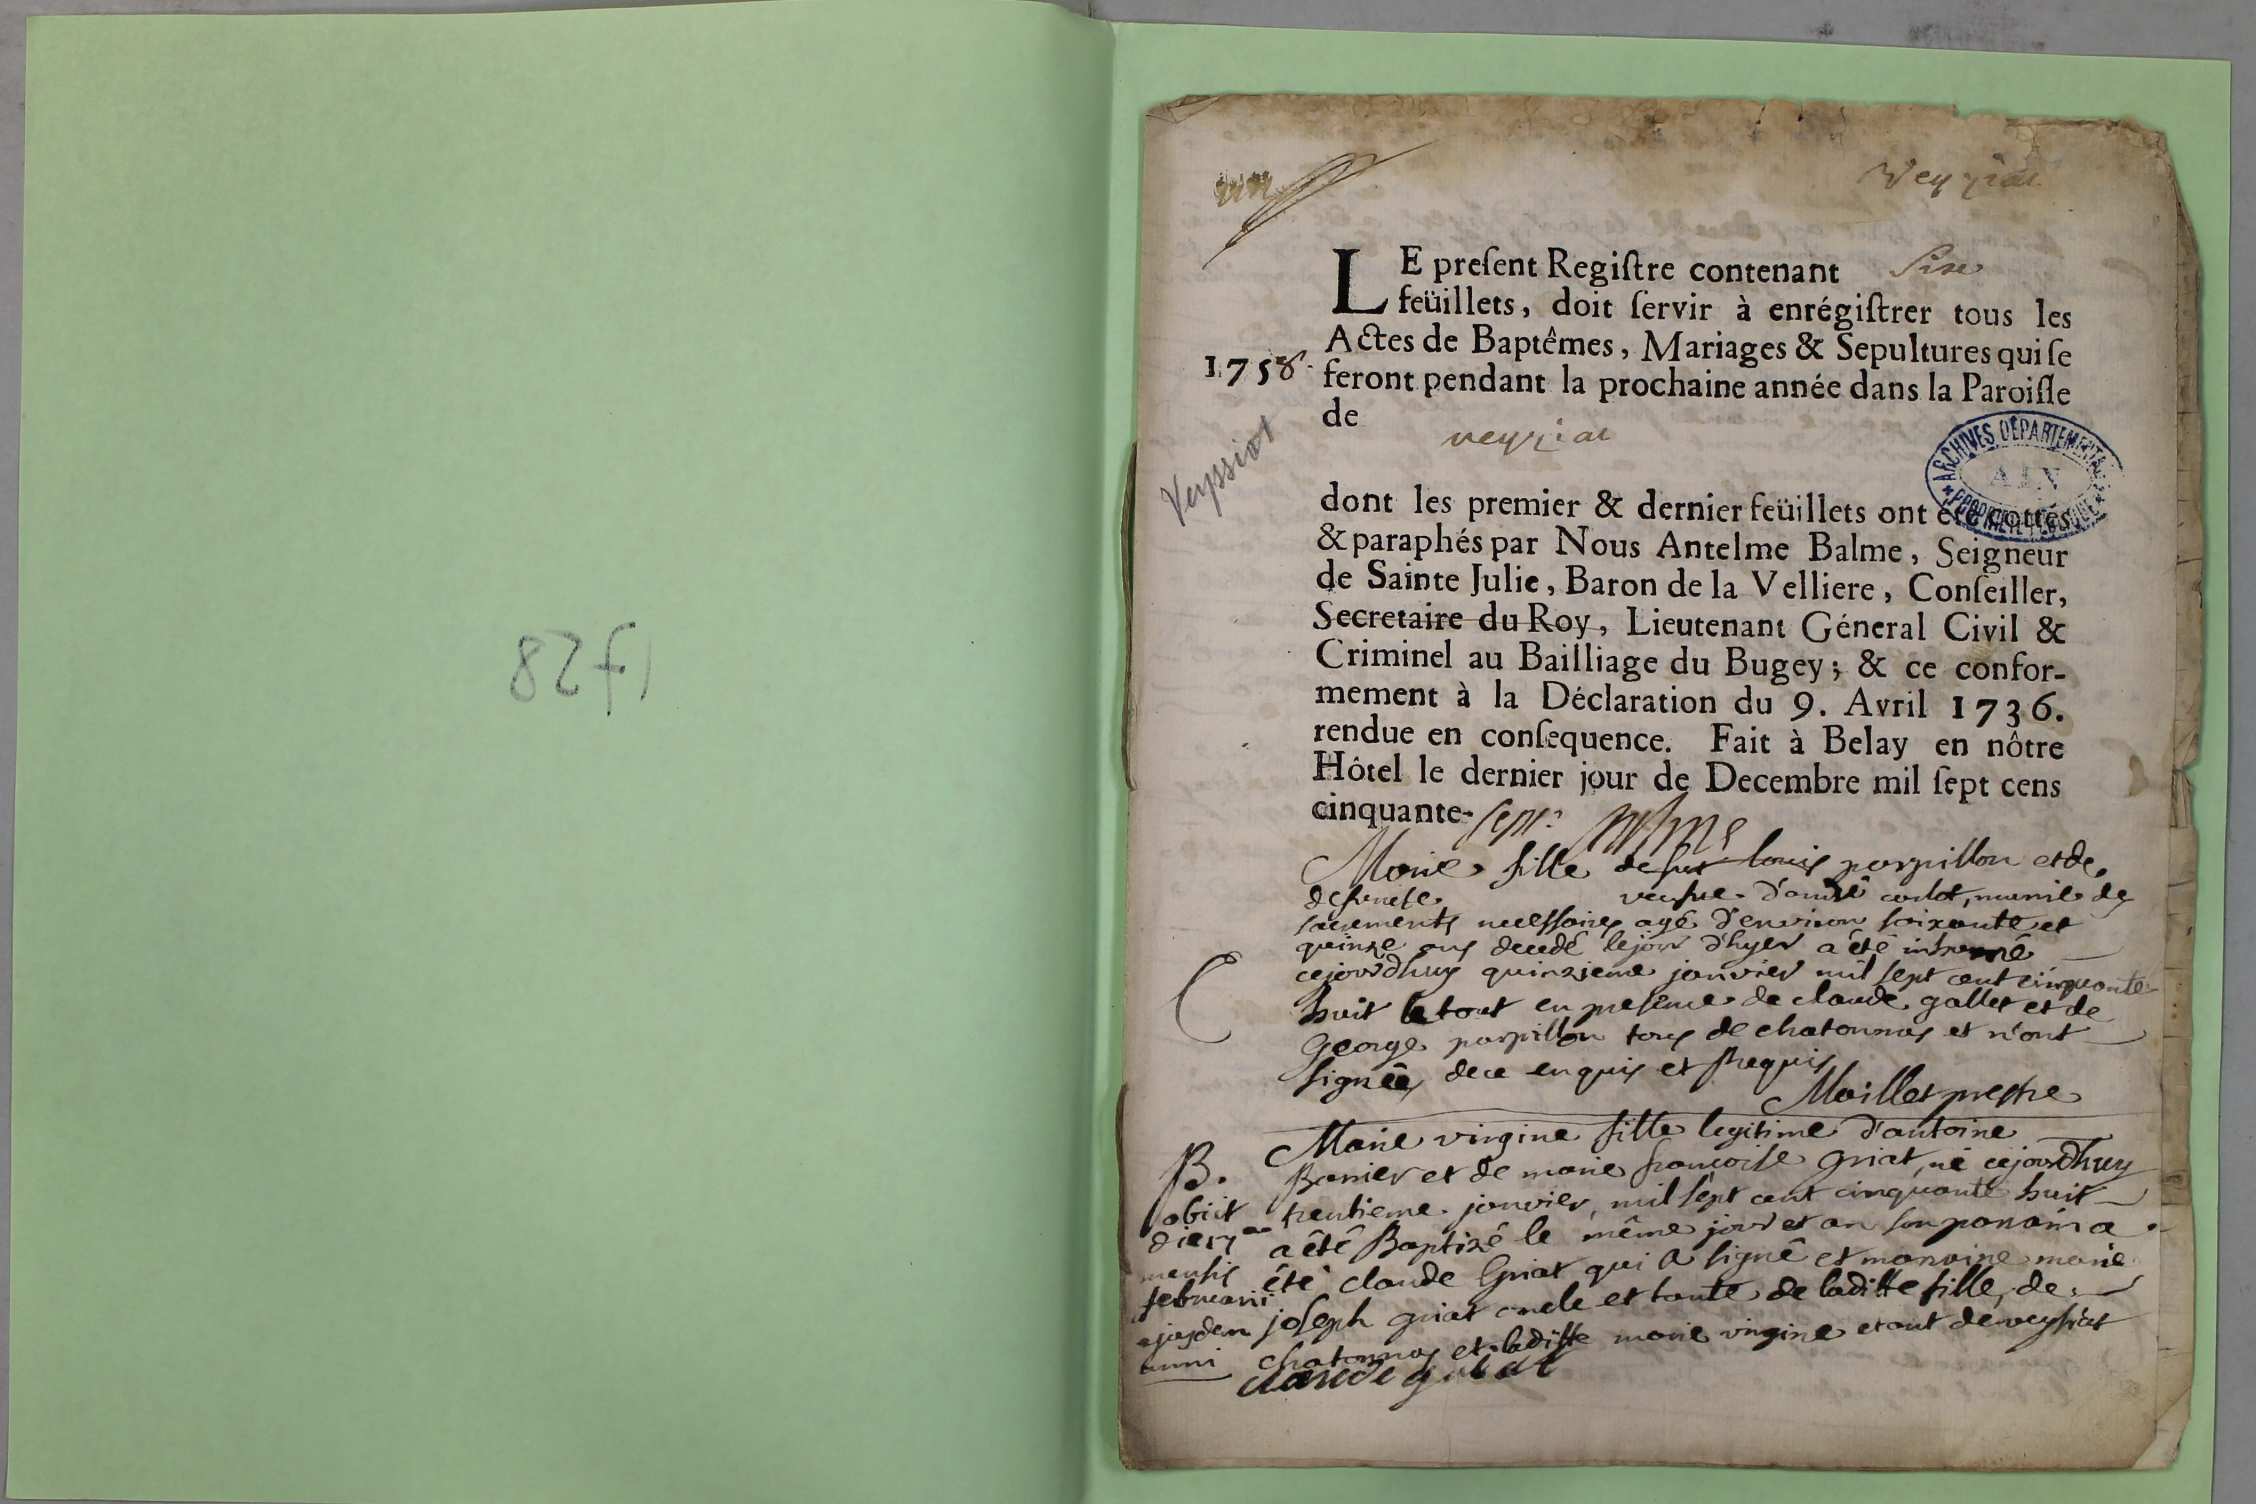 Veyziat
LE preſent Regiſtre contenant Six
feüillets, doit ſervir à enrégiſtrer tous les
Actes de Baptêmes, Mariages & Sepultures qui ſe
1758.
feront pendant la prochaine année dans la Paroiſſe
de
veyziat
Veyssiat
ARCHIVES DÉPARTEMENTALES
AIN
PROPRIÉTÉ PUBLIQUE
dont les premier & dernier feüillets ont été cottés
& paraphés par Nous Antelme Balme, Seigneur
de Sainte Julie, Baron de la Velliere, Conſeiller,
Secretaire du Roy, Lieutenant Géneral Civil &
Criminel au Bailliage du Bugey; & ce confor-
mement à la Déclaration du 9. Avril 1736.
rendue en conſequence. Fait à Belay en nôtre
Hôtel le dernier jour de Decembre mil ſept cens
cinquante-sept.
Marie fille de fut louis parpillon et de
defunete veufve d'andré carlot, munie des
sacrements necessaires agé d'environ soixante et
quinze ans decedé le jour d'hyer a été inhumé
cejourdhuy quinzieme janvier mil sept cent cinquante
huit le tout en presence de claude gallet et de
George parpillon tous de chatonnas et n'ont
signéé, de ce enquis et requis
Maillet prestre
Marie virgine fille legitime d'antoine
B.
Banier et de marie françoise griat, né cejourdhuy
obiit
trentieme janvier, mil sept cent cinquante huit
die 17ae
a été Baptizé le même jour et an son parain a
mensis
été claude Griat qui a signé et maraine marie
februarii
joseph griat oncle et tante de laditte fille, de
ejusdem
chatonnas et laditte marie virgine etant de veysiat
anni
claude griat